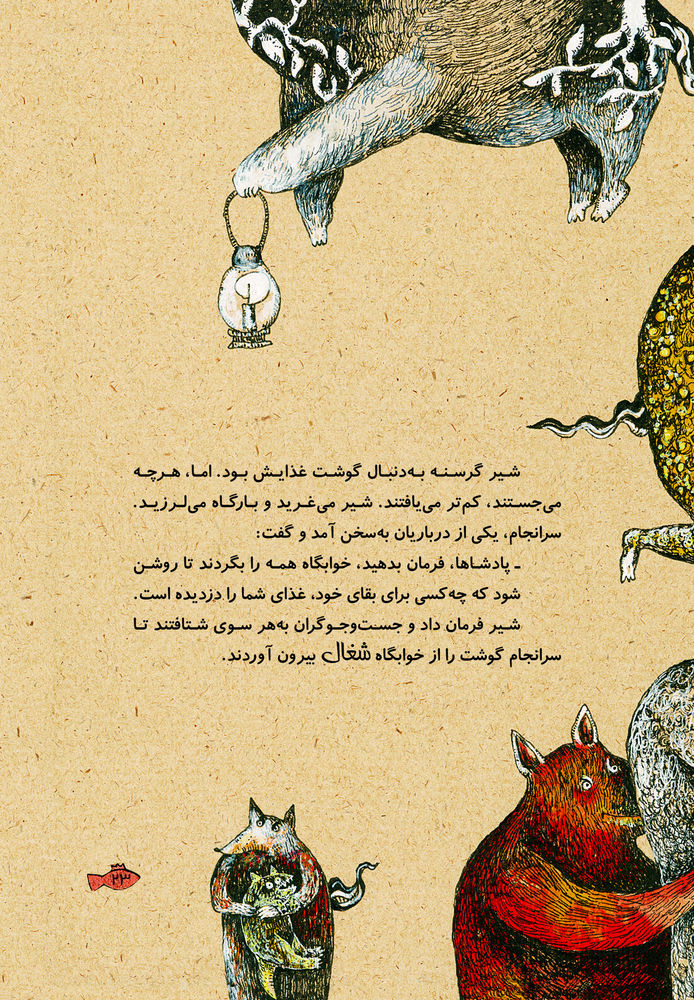 شیر گرسنه به‌دنبال گوشت غذایش بود. اما، هرچه
می‌جستند، کم‌تر می‌یافتند. شیر می‌غرید و بارگاه می‌لرزید.
سرانجام، یکی از درباریان به‌سخن آمد و گفت:
ـ پادشاها، فرمان بدهید، خوابگاه همه را بگردند تا روشن
شود که چه‌کسی برای بقای خود، غذای شما را دزدیده است.
شیر فرمان داد و جست‌وجوگران به‌هر سوی شتافتند تا
سرانجام گوشت را از خوابگاه شغال بیرون آوردند.
۲۳